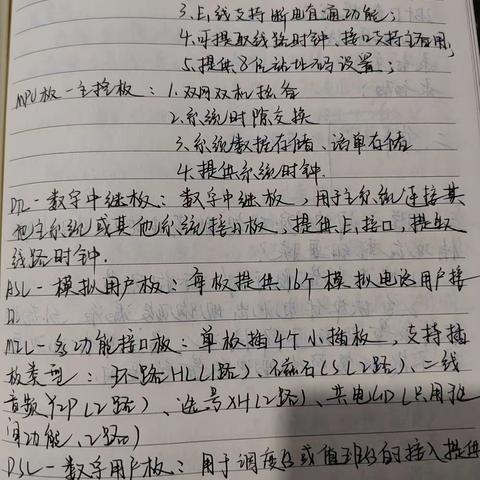 3.E1线支持断电直通功能;
4.可提取线路时钟、接口支持主备用;
5.提供8位站址码设置;
MPU板-主控板:1.双网双机热备
2.系统时隙交换
3.系统数据存储、话单存储
4.提供系统时钟.
DTL-数字中继板:数字中继板,用于主系统连接其
他主系统或其他系统接口板,提供E1接口,提取
线路时钟.
ASL-模拟用户板:每板提供16个模拟电话用户接
口
MIL-多功能接口板:单板插4个小插板,支持插
板类型:环路HL(1路)、磁石CS(2路)、二线
音频YZP(2路)、选号XH(2路)、共电GD(只用于
功能、2路)
DSL-数字用户板:用于调度台或值班台的接入提供